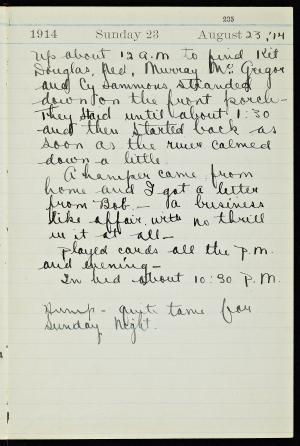 235
1914 Sunday 23 August 23, '14
up about 12 a.m to find Kit
Douglas, Ned, Murray Mc Gregor
and Cy Sammons stranded
down on the front porch -
They staid until about 1:30
and then started back as
soon as the river calmed
down a little.
A hamper came from
home and I got a letter
from Bob - a business
like affair with no thrill
in it at all -
played cards all the P.M.
and evening -
In bed about 10:30 P.M.
Hump - quite tame for
Sunday Night.